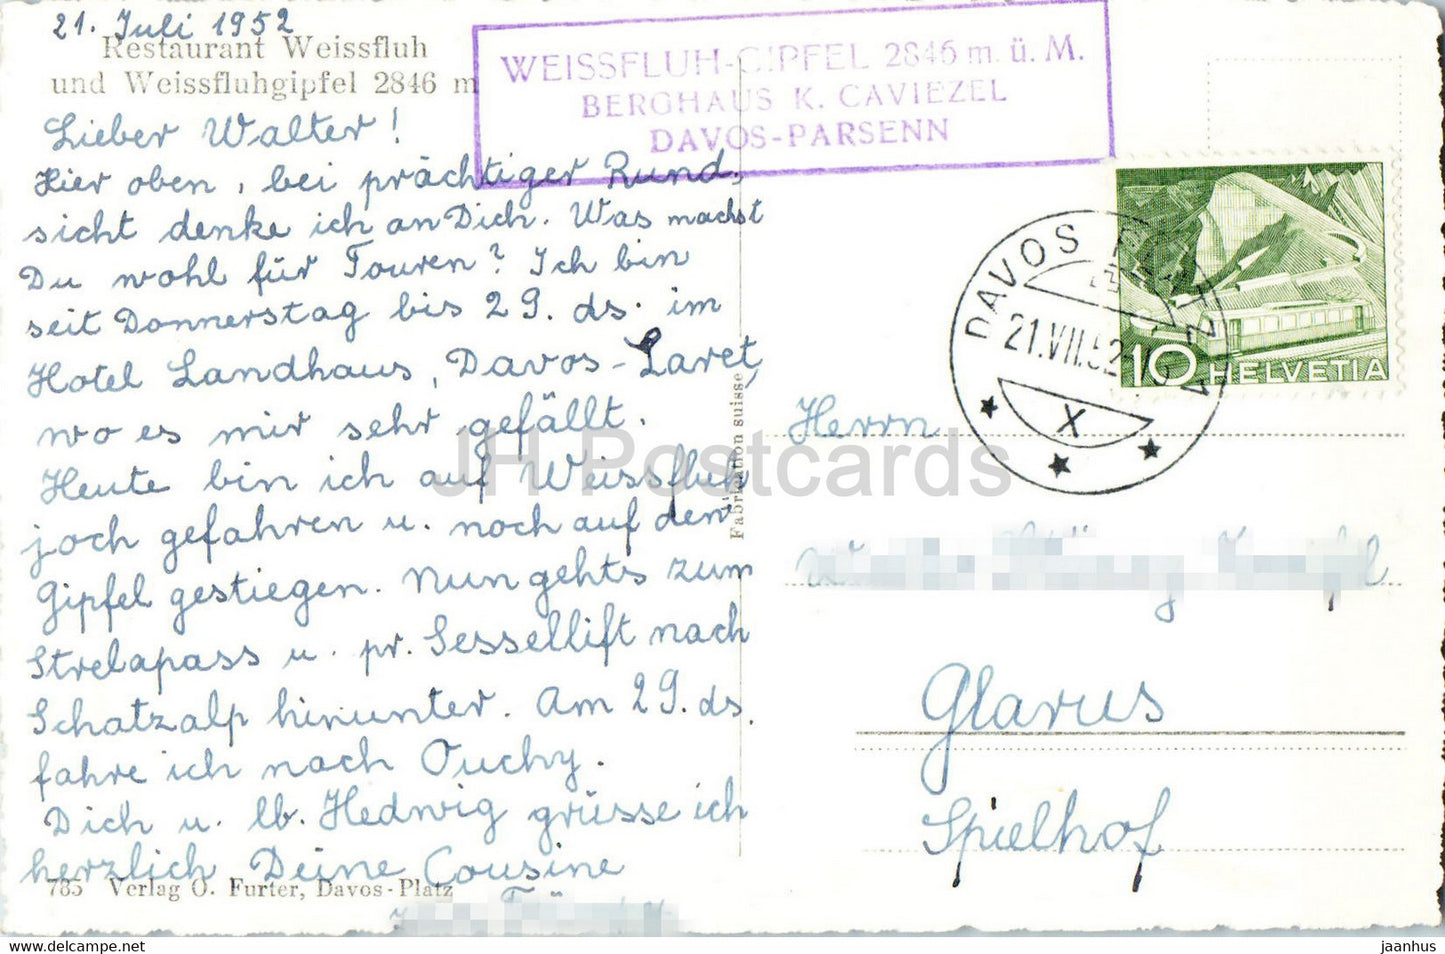 21. Juli 1952
Restaurant Weissfluh
und Weissfluhgipfel 2846 m
WEISSFLUH-GIPFEL 2846 m. ü. M.
BERGHAUS K. CAVIEZEL
DAVOS-PARSENN
Lieber Walter!
Hier oben, bei prächtiger Rund-
sicht denke ich an Dich. Was machst
Du wohl für Touren? Ich bin
seit Donnerstag bis 29. ds. im
Hotel Landhaus, Davos-Laret,
wo es mir sehr gefällt.
Heute bin ich auf Weissfluh
joch gefahren u. noch auf den
Gipfel gestiegen. Nun gehts zum
Strelapass u. pr. Sessellift nach
Schatzalp hinunter. Am 29. ds.
fahre ich nach Ouchy.
Dich u. lb. Hedwig grüsse ich
herzlich Deine Cousine
785 Verlag O. Furter, Davos-Platz
Fabrication suisse
DAVOS PLATZ
21.VII.52
X
10 HELVETIA
Herrn
Glarus
Spielhof
JH Postcards
https://jhpostcards.com
jaanhus